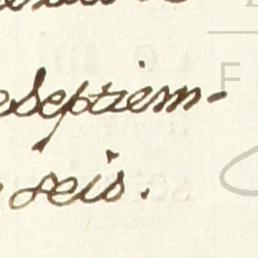 eSeptiem-
seis.